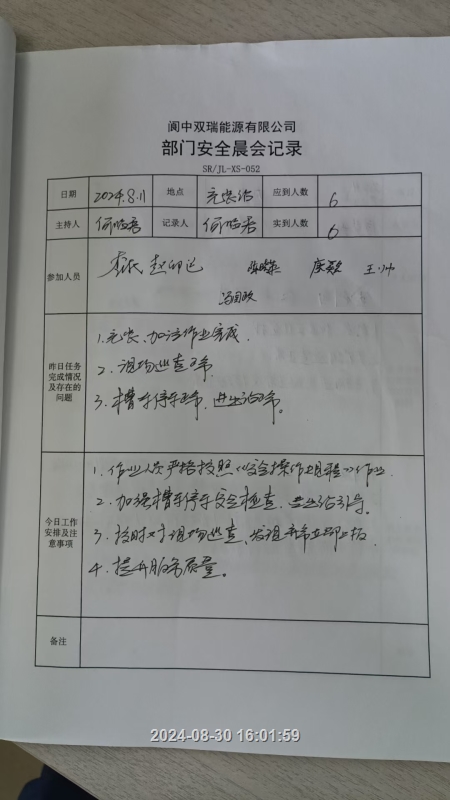 阆中双瑞能源有限公司
部门安全晨会记录
SR/JL-XS-052
日期 2024.8.11 地点 充装站 应到人数 6
主持人 记录人 实到人数 6
参加人员
昨日任务完成情况及存在的问题
1.充装、加注作业完成.
2.现场巡查正常.
3.槽车停车正常,进出站正常。
今日工作安排及注意事项
1.作业人员严格按照《安全操作规程》作业.
2.加强槽车停车安全检查,进出站引导.
3.按时对现场巡查、发现异常立即上报.
4.提升服务质量。
备注
2024-08-30 16:01:59